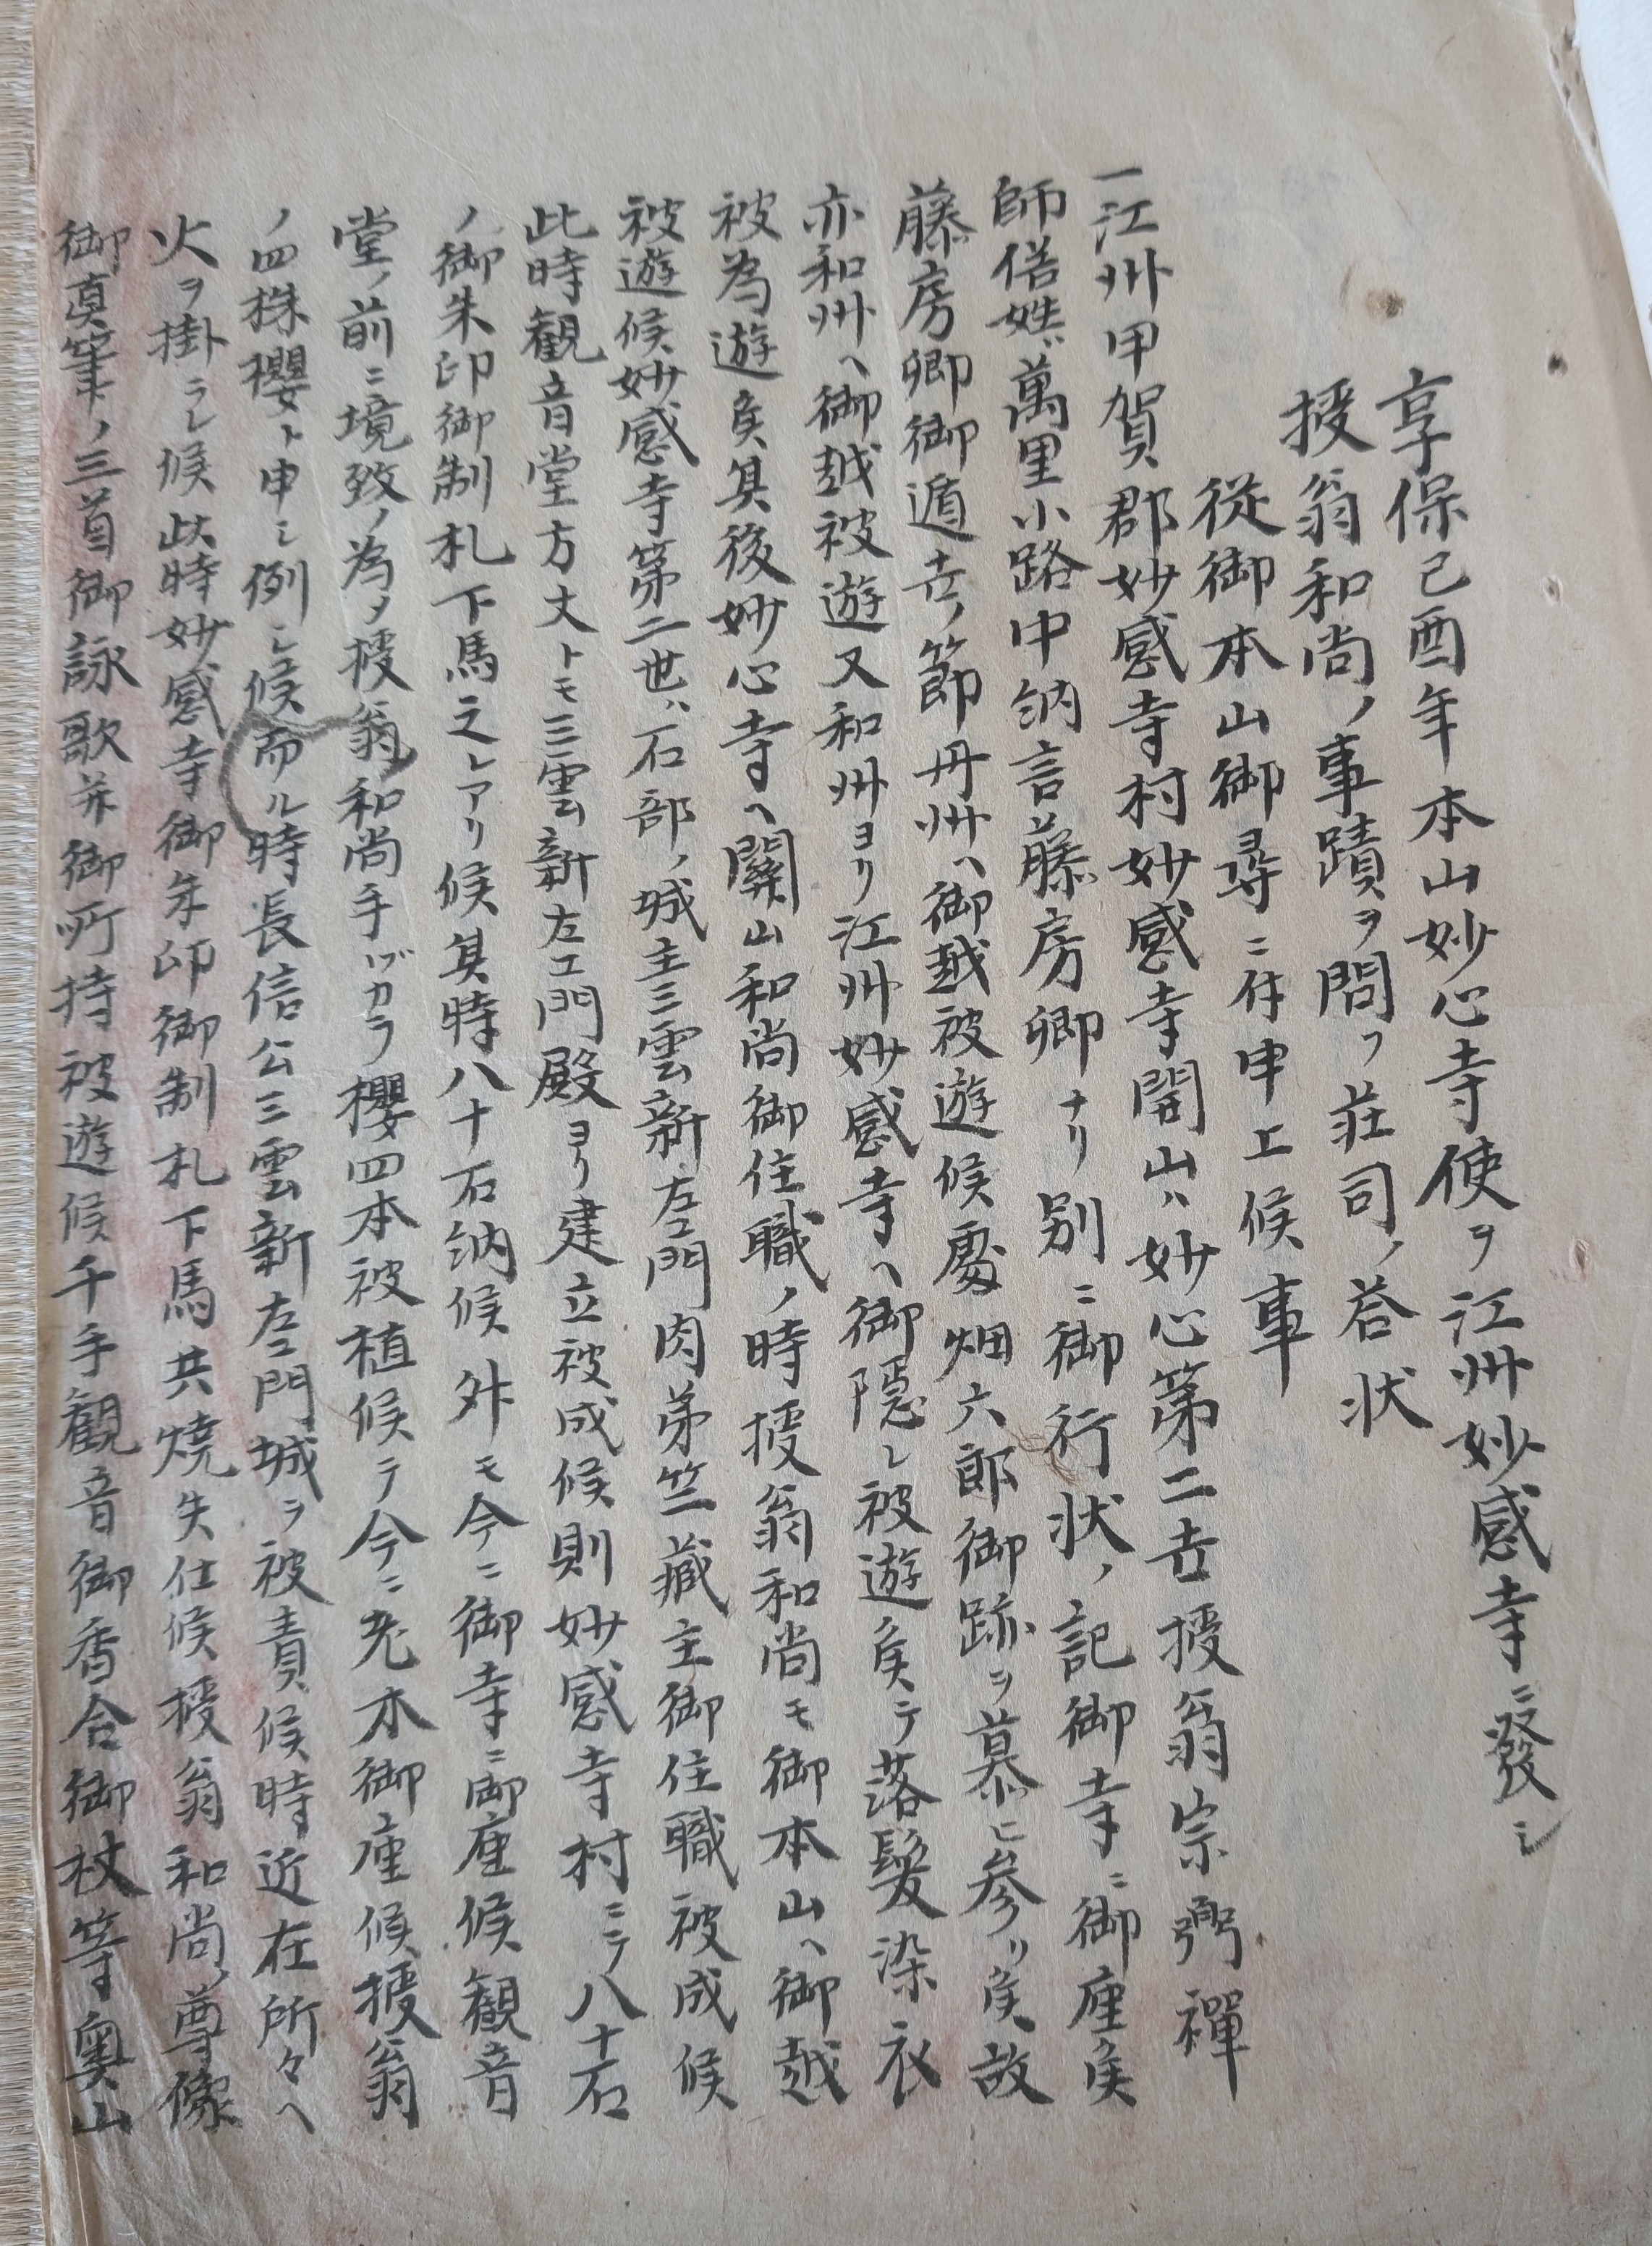 享保己酉年本山妙心寺使ヲ江州妙感寺ニ發シ
授翁和尚ノ事蹟ヲ問フ荘司ノ荅状
従御本山御尋ニ付申上候事
一江州甲賀郡妙感寺村妙感寺開山ハ妙心第二世授翁宗弼禪
師俗姓ハ萬里小路中納言藤房卿ナリ別ニ御行状ノ記御寺ニ御座候
藤房卿御遁世ノ節丹州ヘ御越被遊候處畑六郎御跡ヲ慕ヒ参リ候故
亦和州ヘ御越被遊又和州ヨリ江州妙感寺ヘ御隠レ被遊候テ落髪染衣
被為遊候其後妙心寺ヘ關山和尚御住職ノ時授翁和尚モ御本山ヘ御越
被遊候妙感寺第二世ハ石部ノ城主三雲新左エ門肉弟竺蔵主御住職被成候
此時観音堂方丈トモ三雲新左エ門殿ヨリ建立被成候則妙感寺村ニテ八十石
ノ御朱印御制札下馬之レアリ候其時八十石納候外モ今ニ御寺ニ御座候観音
堂ノ前ニ境致ノ為メ授翁和尚手ヅカラ櫻四本被植候テ今ニ老木御座候授翁
ノ四株櫻ト申シ例シ候而ル時長信公三雲新左エ門城ヲ被責候時近在所々ヘ
火ヲ掛ラレ候此時妙感寺御朱印御制札下馬共焼失仕候授翁和尚ノ尊像
御真筆ノ三首御詠歌并御所持被遊候千手観音御香合御杖等奥山